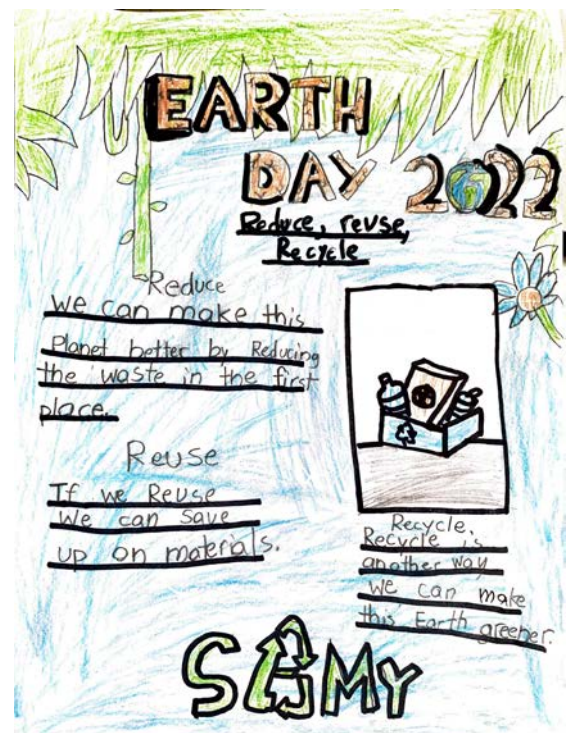 EARTH
DAY 2022
Reduce, reuse,
Recycle
Reduce
we can make this
Planet better by Reducing
the waste in the first
place.
Reuse
If we Reuse
We can save
up on materials.
Recycle.
Recycle is
another way
we can make
this Earth greener.
SAMY